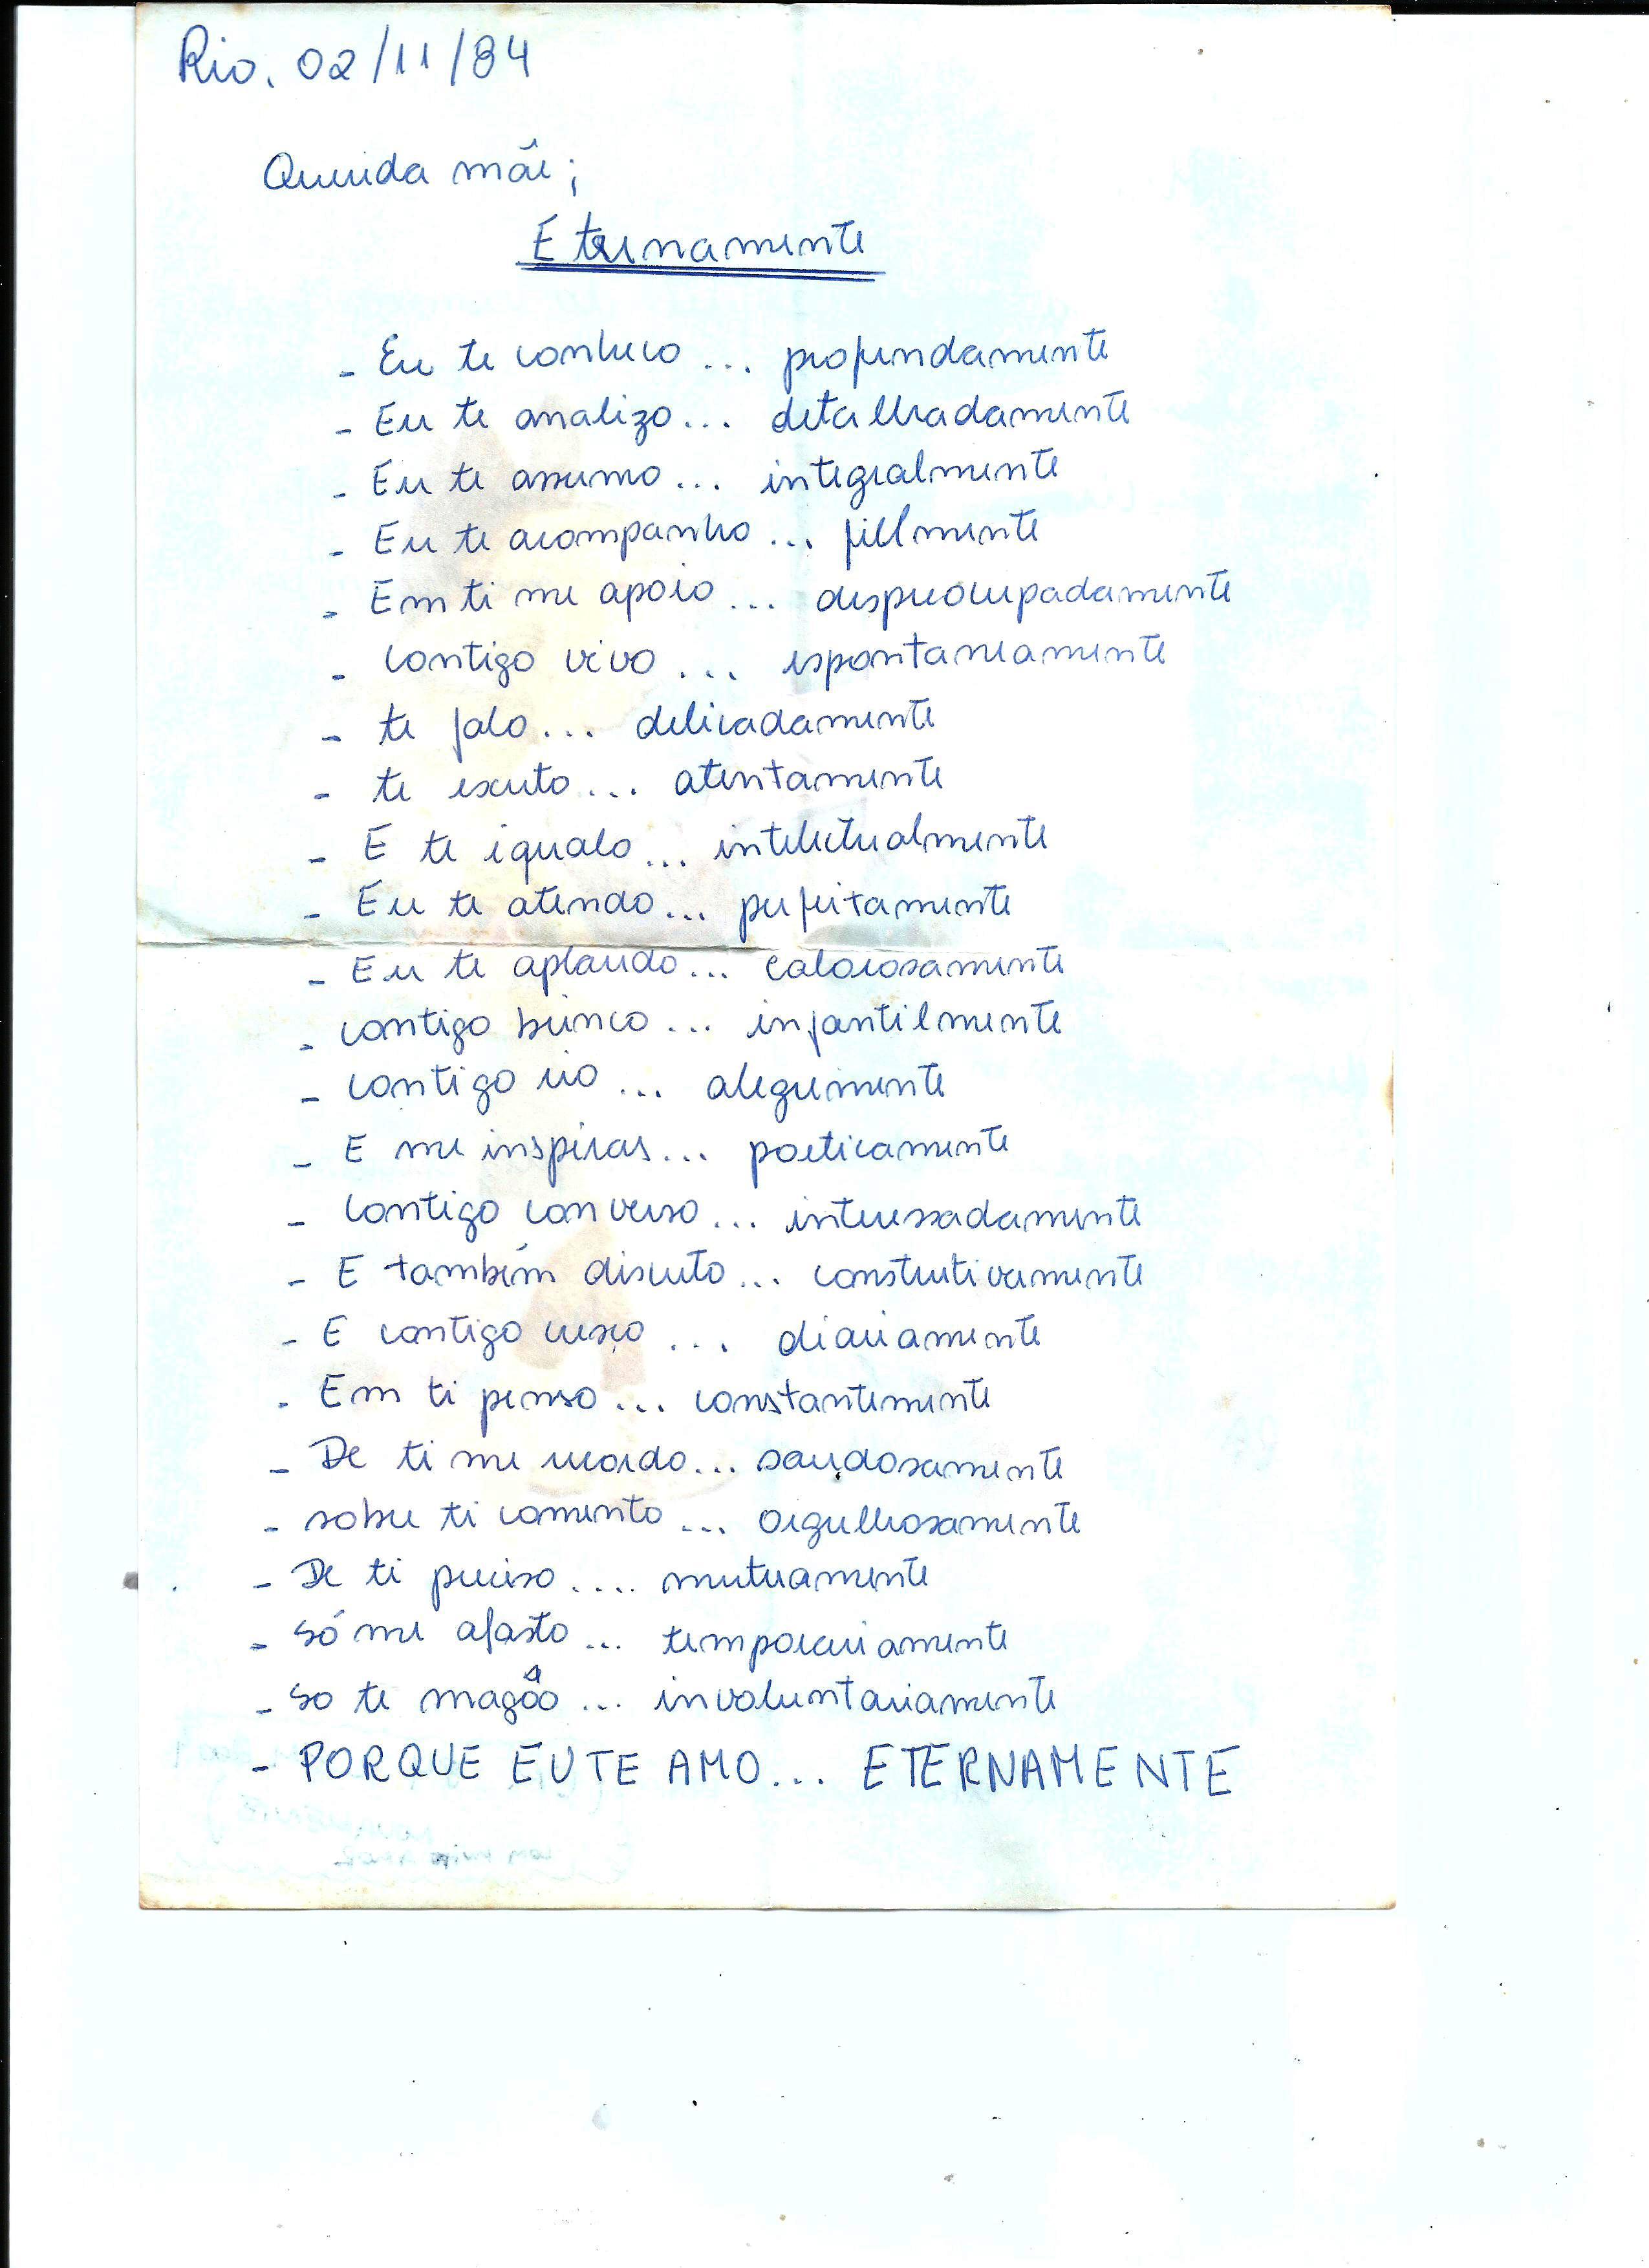 Rio, 02/11/84
Querida mãe;
Eternamente
- Eu te conheco ... profundamente
- Eu te analizo... detalhadamente
- Eu te assumo... integralmente
- Eu te acompanho... fielmente
- Em ti me apoio ... despreocupadamente
- Contigo vivo ... espontaneamente
- te falo... delicadamente
- te escuto... atentamente
- E te igualo... intelectualmente
- Eu te atendo... perfeitamente
- Eu te aplaudo... calorosamente
- contigo brinco... infantilmente
- contigo rio ... alegremente
- E me inspiras... poeticamente
- Contigo converso... interessadamente
- E também discuto... construtivamente
- E contigo cresço ... diariamente
- Em ti penso... constantemente
- De ti me recordo... saudosamente
- sobre ti comento ... orgulhosamente
- De ti preciso.... mutuamente
- só me afasto... temporariamente
- so te magôo ... involuntariamente
- PORQUE EU TE AMO... ETERNAMENTE